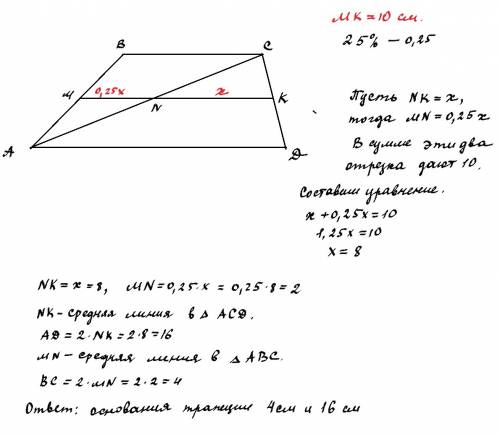 MK = 10 см.
25% – 0,25
B
C
M
0,25x
x
N
K
A
D
Пусть NK = x,
тогда MN = 0,25x
В сумме эти два
отрезка дают 10.
Составим уравнение.
x + 0,25x = 10
1,25x = 10
x = 8
NK = x = 8, MN = 0,25·x = 0,25·8 = 2
NK – средняя линия в Δ ACD.
AD = 2·NK = 2·8 = 16
MN – средняя линия в Δ ABC.
BC = 2·MN = 2·2 = 4
Ответ: основания трапеции 4 см и 16 см